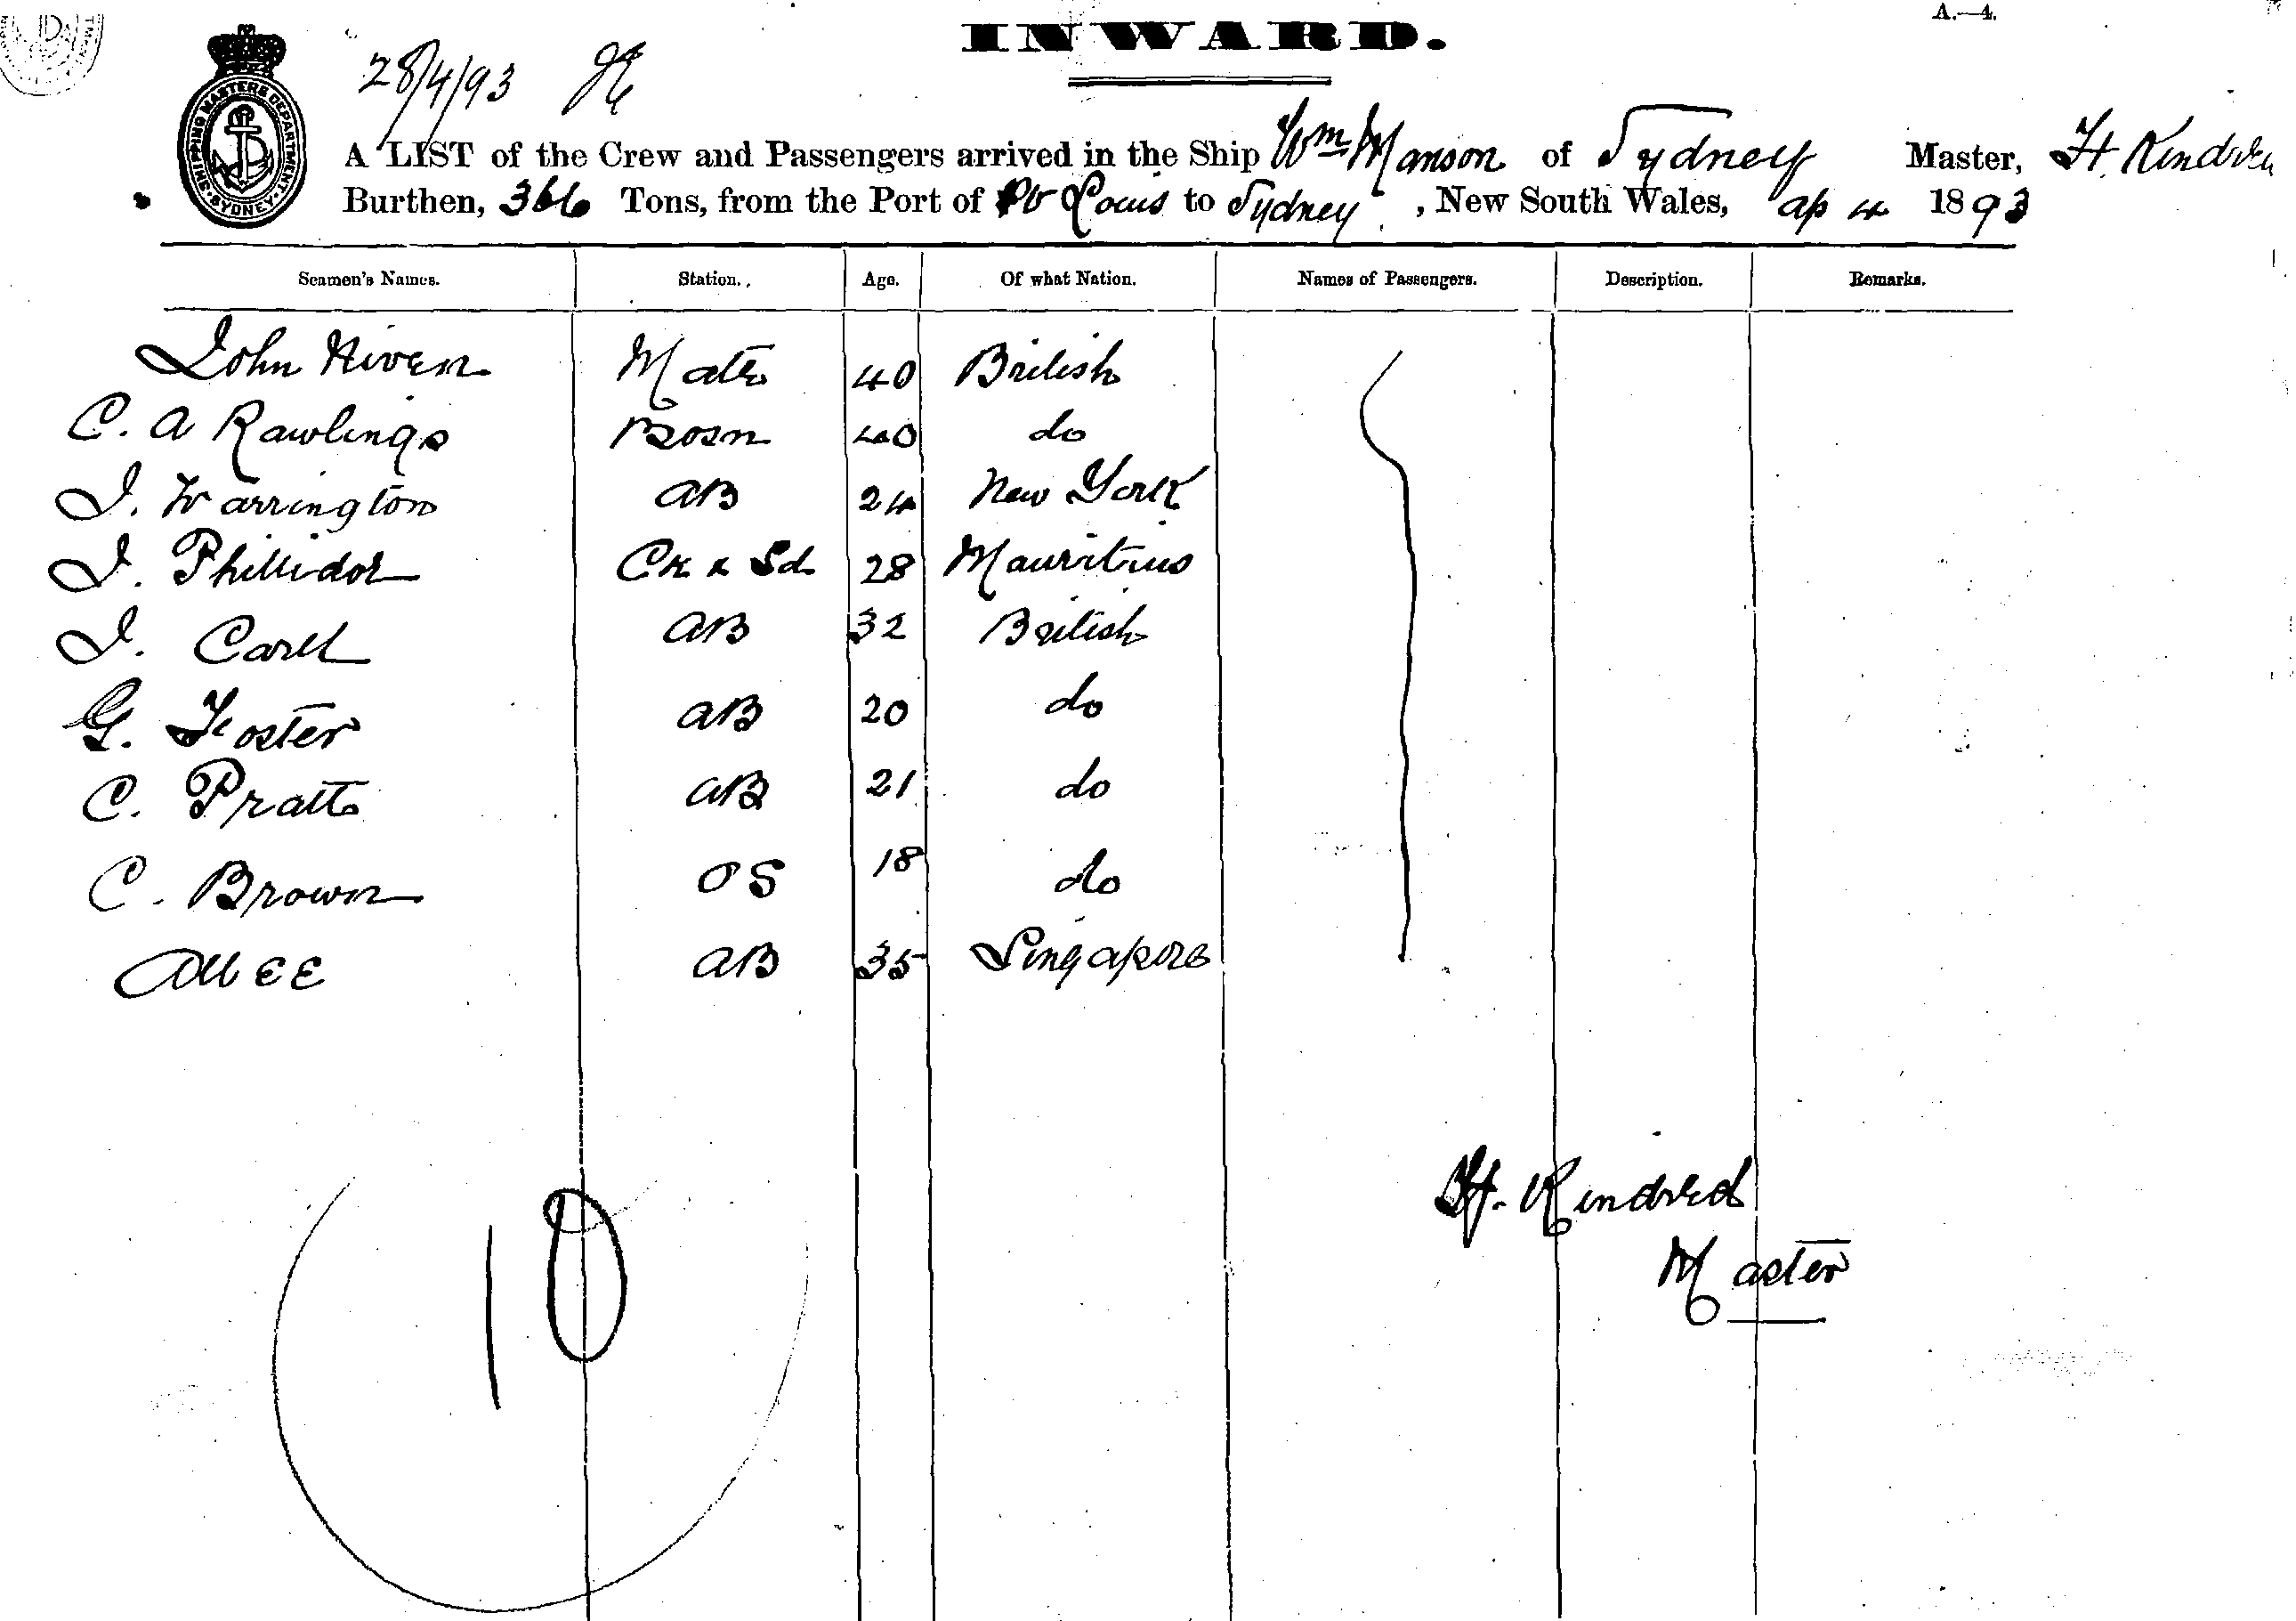 A.—4.
INWARD.
28/4/93
SHIPPING MASTERS DEPARTMENT SYDNEY
A LIST of the Crew and Passengers arrived in the Ship Wm Manson of Sydney Master, H. Kindred
Burthen, 366 Tons, from the Port of Pt Louis to Sydney, New South Wales, ap 4 1893
Seamen's Names. Station. Age. Of what Nation. Names of Passengers. Description. Remarks.
John Niven Mate 40 British
C. A Rawlings Bosn 40 do
J. Warrington AB 24 New York
J. Phillidor Ck & Sd 28 Mauritius
J. Carll AB 32 British
G. Foster AB 20 do
C. Pratt AB 21 do
C. Brown OS 18 do
AB 35 Singapore
H. Kindred
Master
10